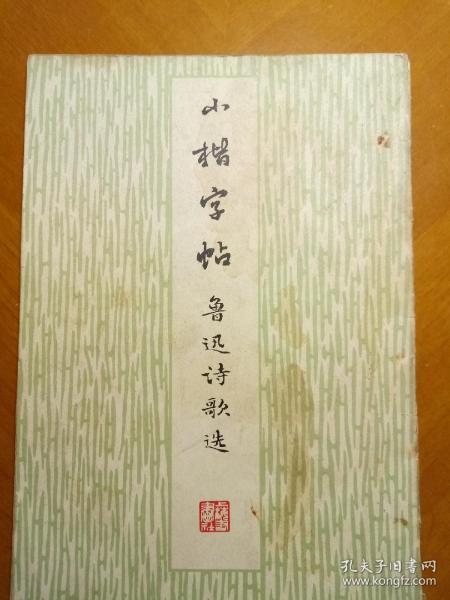 小楷字帖
鲁迅诗歌选
上海书画社
孔夫子旧书网
www.kongfz.com